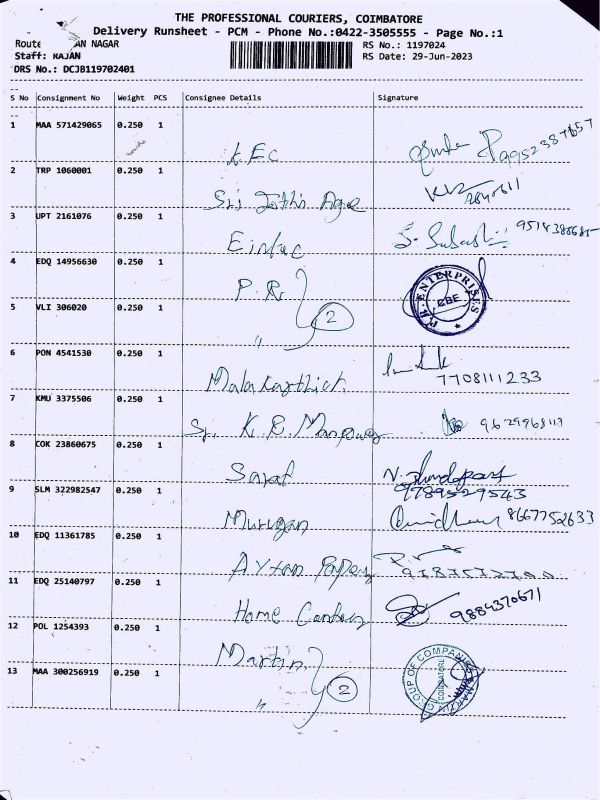 THE PROFESSIONAL COURIERS, COIMBATORE
Delivery Runsheet - PCM - Phone No.:0422-3505555 - Page No.:1
Route AN NAGAR RS No.: 1197024
Staff: RAJAN RS Date: 29-Jun-2023
DRS No.: DCJB119702401
S No Consignment No Weight PCS Consignee Details Signature
1 MAA 571429065 0.250 1
KEC 9952387657
2 TRP 1060001 0.250 1
Sri Jothi Agre
3 UPT 2161076 0.250 1
S. Subash
4 EDQ 14956630 0.250 1
P.R. P.R. ENTERPRISES CBE
5 VLI 306020 0.250 1
" 2
6 PON 4541530 0.250 1
Malakarthick 7708111233
7 KMU 3375506 0.250 1
Sri K.R. Manpower
8 COK 23860675 0.250 1
Saraf
9 SLM 322982547 0.250 1
9789529543
Murugan 8667752633
10 EDQ 11361785 0.250 1
Papers
11 EDQ 25140797 0.250 1
Home 9884370671
12 POL 1254393 0.250 1
Martin GROUP OF COMPANIES MARTIN COIMBATORE
13 MAA 300256919 0.250 1
" 2